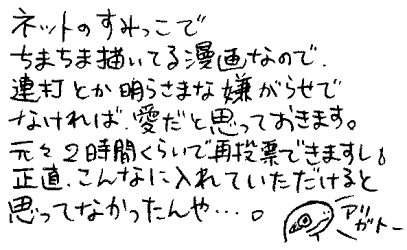 ネットのすみっこで
ちまちま描いてる漫画なので、
連打とか明らさまな嫌がらせで
なければ、愛だと思っておきます。
元々2時間くらいで再投票できますし、
正直、こんなに入れていただけると
思ってなかったんや…。
アリガトー